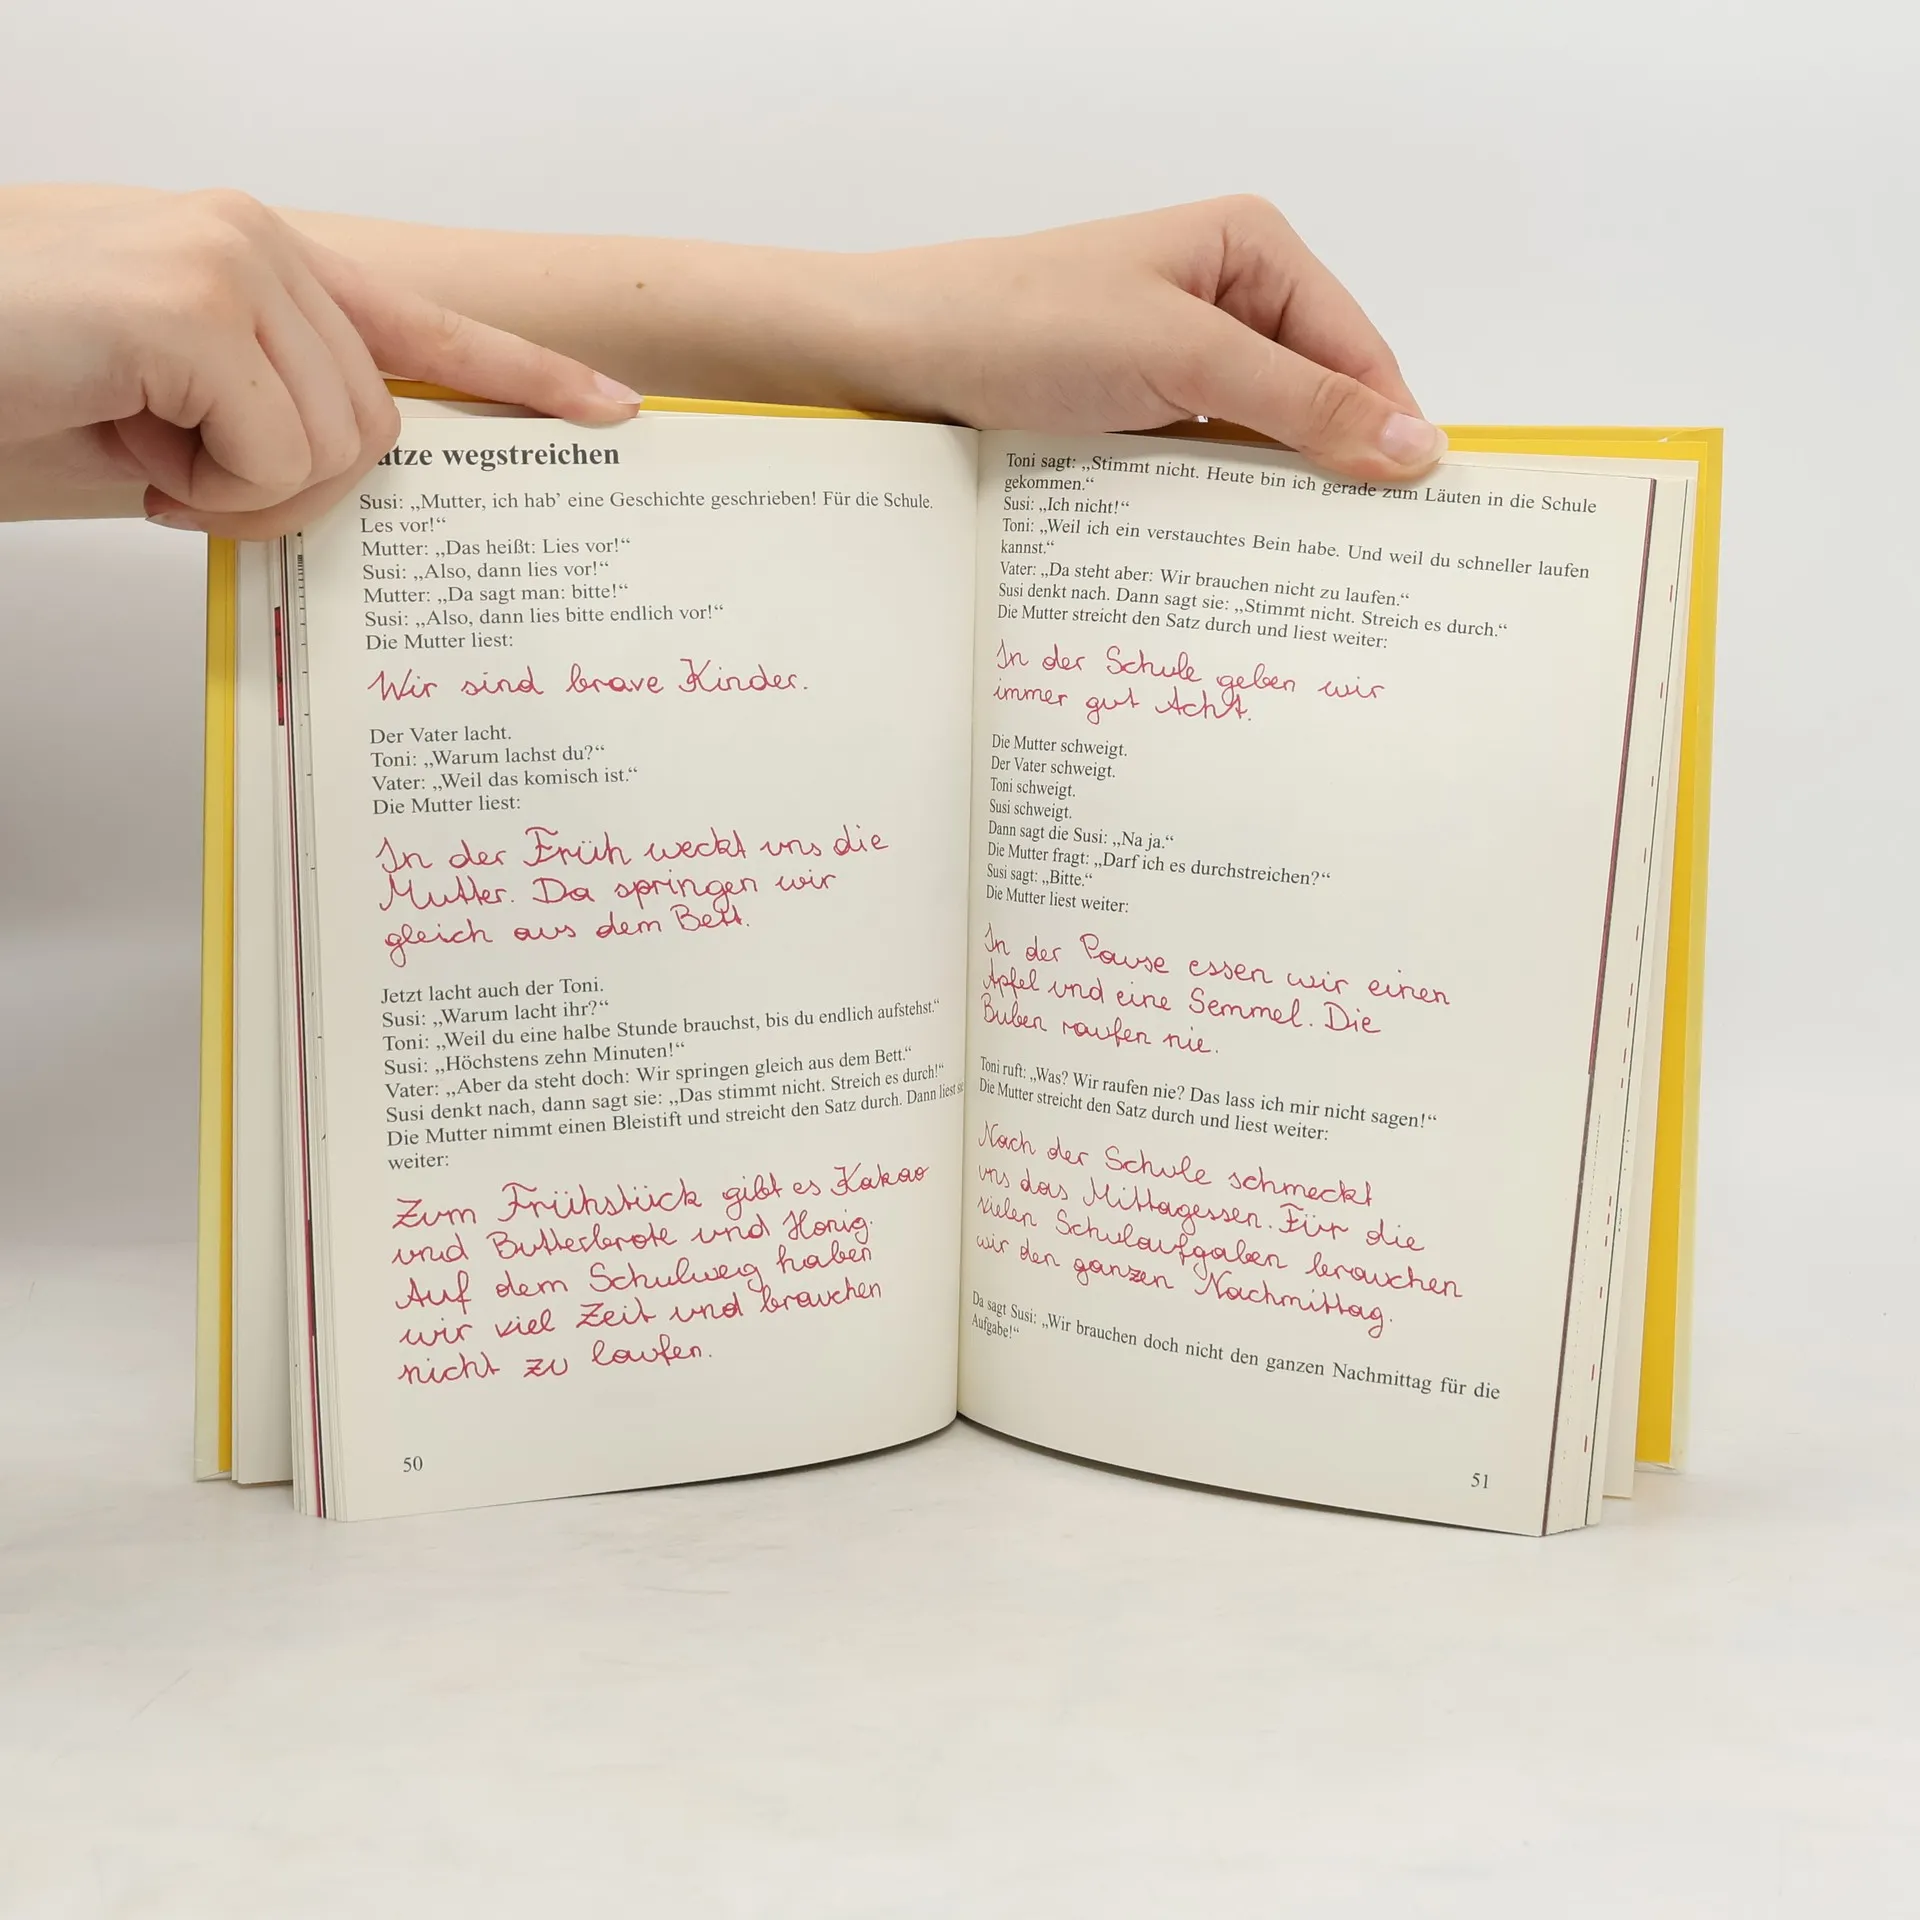 ätze wegstreichen
Susi: „Mutter, ich hab’ eine Geschichte geschrieben! Für die Schule.
Les vor!“
Mutter: „Das heißt: Lies vor!“
Susi: „Also, dann lies vor!“
Mutter: „Da sagt man: bitte!“
Susi: „Also, dann lies bitte endlich vor!“
Die Mutter liest:
Wir sind brave Kinder.
Der Vater lacht.
Toni: „Warum lachst du?“
Vater: „Weil das komisch ist.“
Die Mutter liest:
In der Früh weckt uns die
Mutter. Da springen wir
gleich aus dem Bett.
Jetzt lacht auch der Toni.
Susi: „Warum lacht ihr?“
Toni: „Weil du eine halbe Stunde brauchst, bis du endlich aufstehst.“
Susi: „Höchstens zehn Minuten!“
Vater: „Aber da steht doch: Wir springen gleich aus dem Bett.“
Susi denkt nach, dann sagt sie: „Das stimmt nicht. Streich es durch!“
Die Mutter nimmt einen Bleistift und streicht den Satz durch. Dann liest
weiter:
Zum Frühstück gibt es Kakao
und Butterbrote und Honig.
Auf dem Schulweg haben
wir viel Zeit und brauchen
nicht zu laufen.
50
Toni sagt: „Stimmt nicht. Heute bin ich gerade zum Läuten in die Schule
gekommen.“
Susi: „Ich nicht!“
Toni: „Weil ich ein verstauchtes Bein habe. Und weil du schneller laufen
kannst.“
Vater: „Da steht aber: Wir brauchen nicht zu laufen.“
Susi denkt nach. Dann sagt sie: „Stimmt nicht. Streich es durch.“
Die Mutter streicht den Satz durch und liest weiter:
In der Schule geben wir
immer gut Acht.
Die Mutter schweigt.
Der Vater schweigt.
Toni schweigt.
Susi schweigt.
Dann sagt die Susi: „Na ja.“
Die Mutter fragt: „Darf ich es durchstreichen?“
Susi sagt: „Bitte.“
Die Mutter liest weiter:
In der Pause essen wir einen
Apfel und eine Semmel. Die
Buben raufen nie.
Toni ruft: „Was? Wir raufen nie? Das lass ich mir nicht sagen!“
Die Mutter streicht den Satz durch und liest weiter:
Nach der Schule schmeckt
uns das Mittagessen. Für die
vielen Schulaufgaben brauchen
wir den ganzen Nachmittag.
Da sagt Susi: „Wir brauchen doch nicht den ganzen Nachmittag für die
Aufgabe!“
51